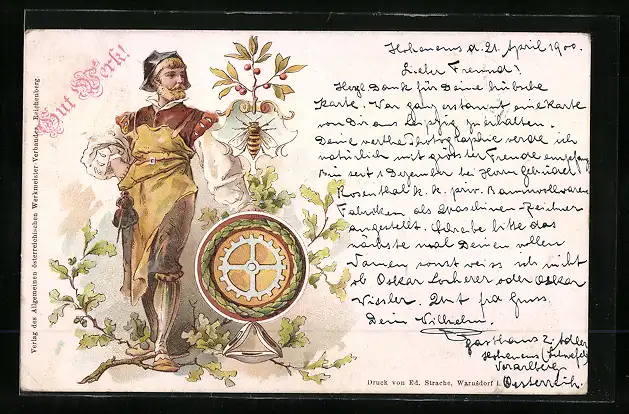 Gut Werk!
Verlag des Allgemeinen österreichischen Werkmeister-Verbandes, Reichenberg
Hohenems d. 21. April 1900.
Lieber Freund!
Hrzl Dank für Deine hübsche
Karte. War ganz erstaunt eine Karte
von Dir aus Leipzig zu erhalten.
Deine werthe Photographie werde ich
natürlich mit grösster Freude empfang
Bin seit 1 Dezember bei Herrn Gebrüder
Rosenthal k. k. priv. Baumwollwaren
Fabriken als Maschinen-Zeichner
angestellt. Schreibe bitte das
nächste mal Deinen vollen
Namen sonst weiss ich nicht
ob Oskar Locherer oder Oskar
Gruss
Dein Wilhelm.
Gasthaus z. Adler
Hohenems
Vorarlberg
Oesterreich.
Druck von Ed. Strache, Warnsdorf i.